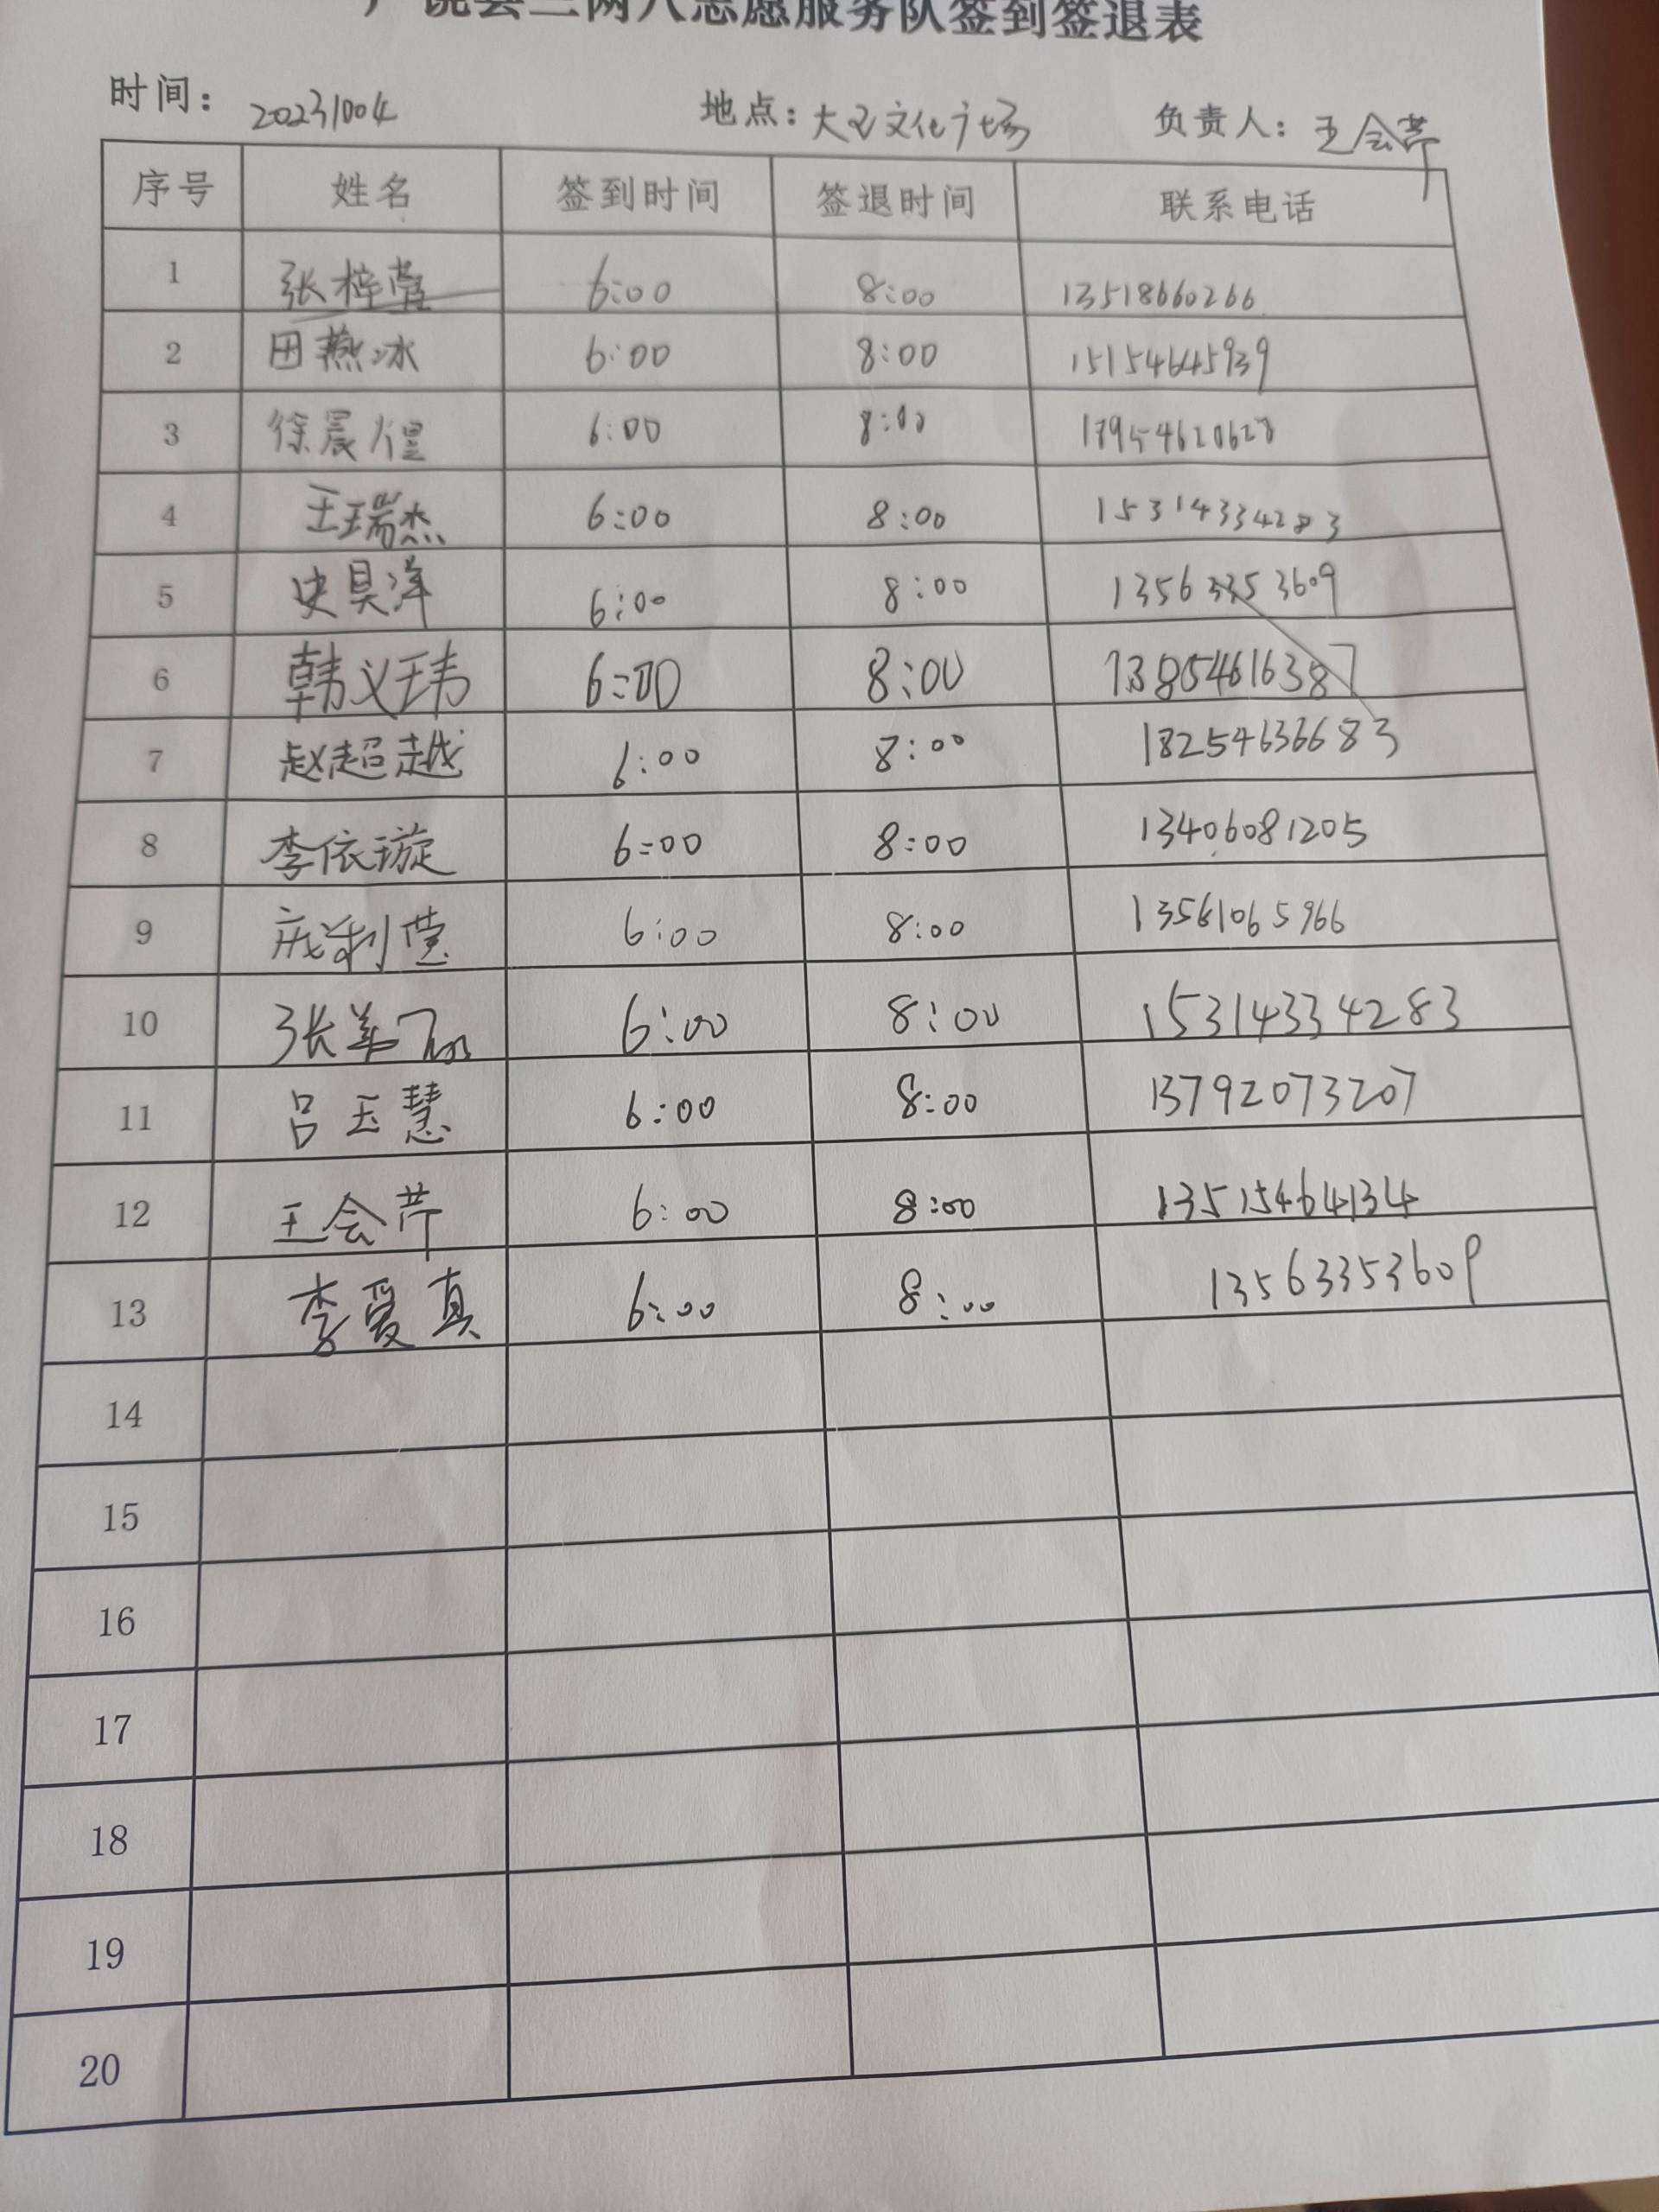 广饶县三两人志愿服务队签到签退表
时间：20231004 地点：大王文化广场 负责人：王会芹
序号 姓名 签到时间 签退时间 联系电话
1 张梓萱 6:00 8:00 13518660266
2 田燕冰 6:00 8:00 15154645939
3 徐晨煌 6:00 8:00 18954620628
4 王瑞杰 6:00 8:00 15314334283
5 史昊洋 6:00 8:00 13563353609
6 韩义玮 6:00 8:00 138054616387
7 赵超越 6:00 8:00 18254636683
8 李依璇 6:00 8:00 13406081205
9 庞利莹 6:00 8:00 13561065966
10 张美 6:00 8:00 15314334283
11 吕玉慧 6:00 8:00 13792073207
12 王会芹 6:00 8:00 13515464134
13 李爱真 6:00 8:00 13563353609
14
15
16
17
18
19
20